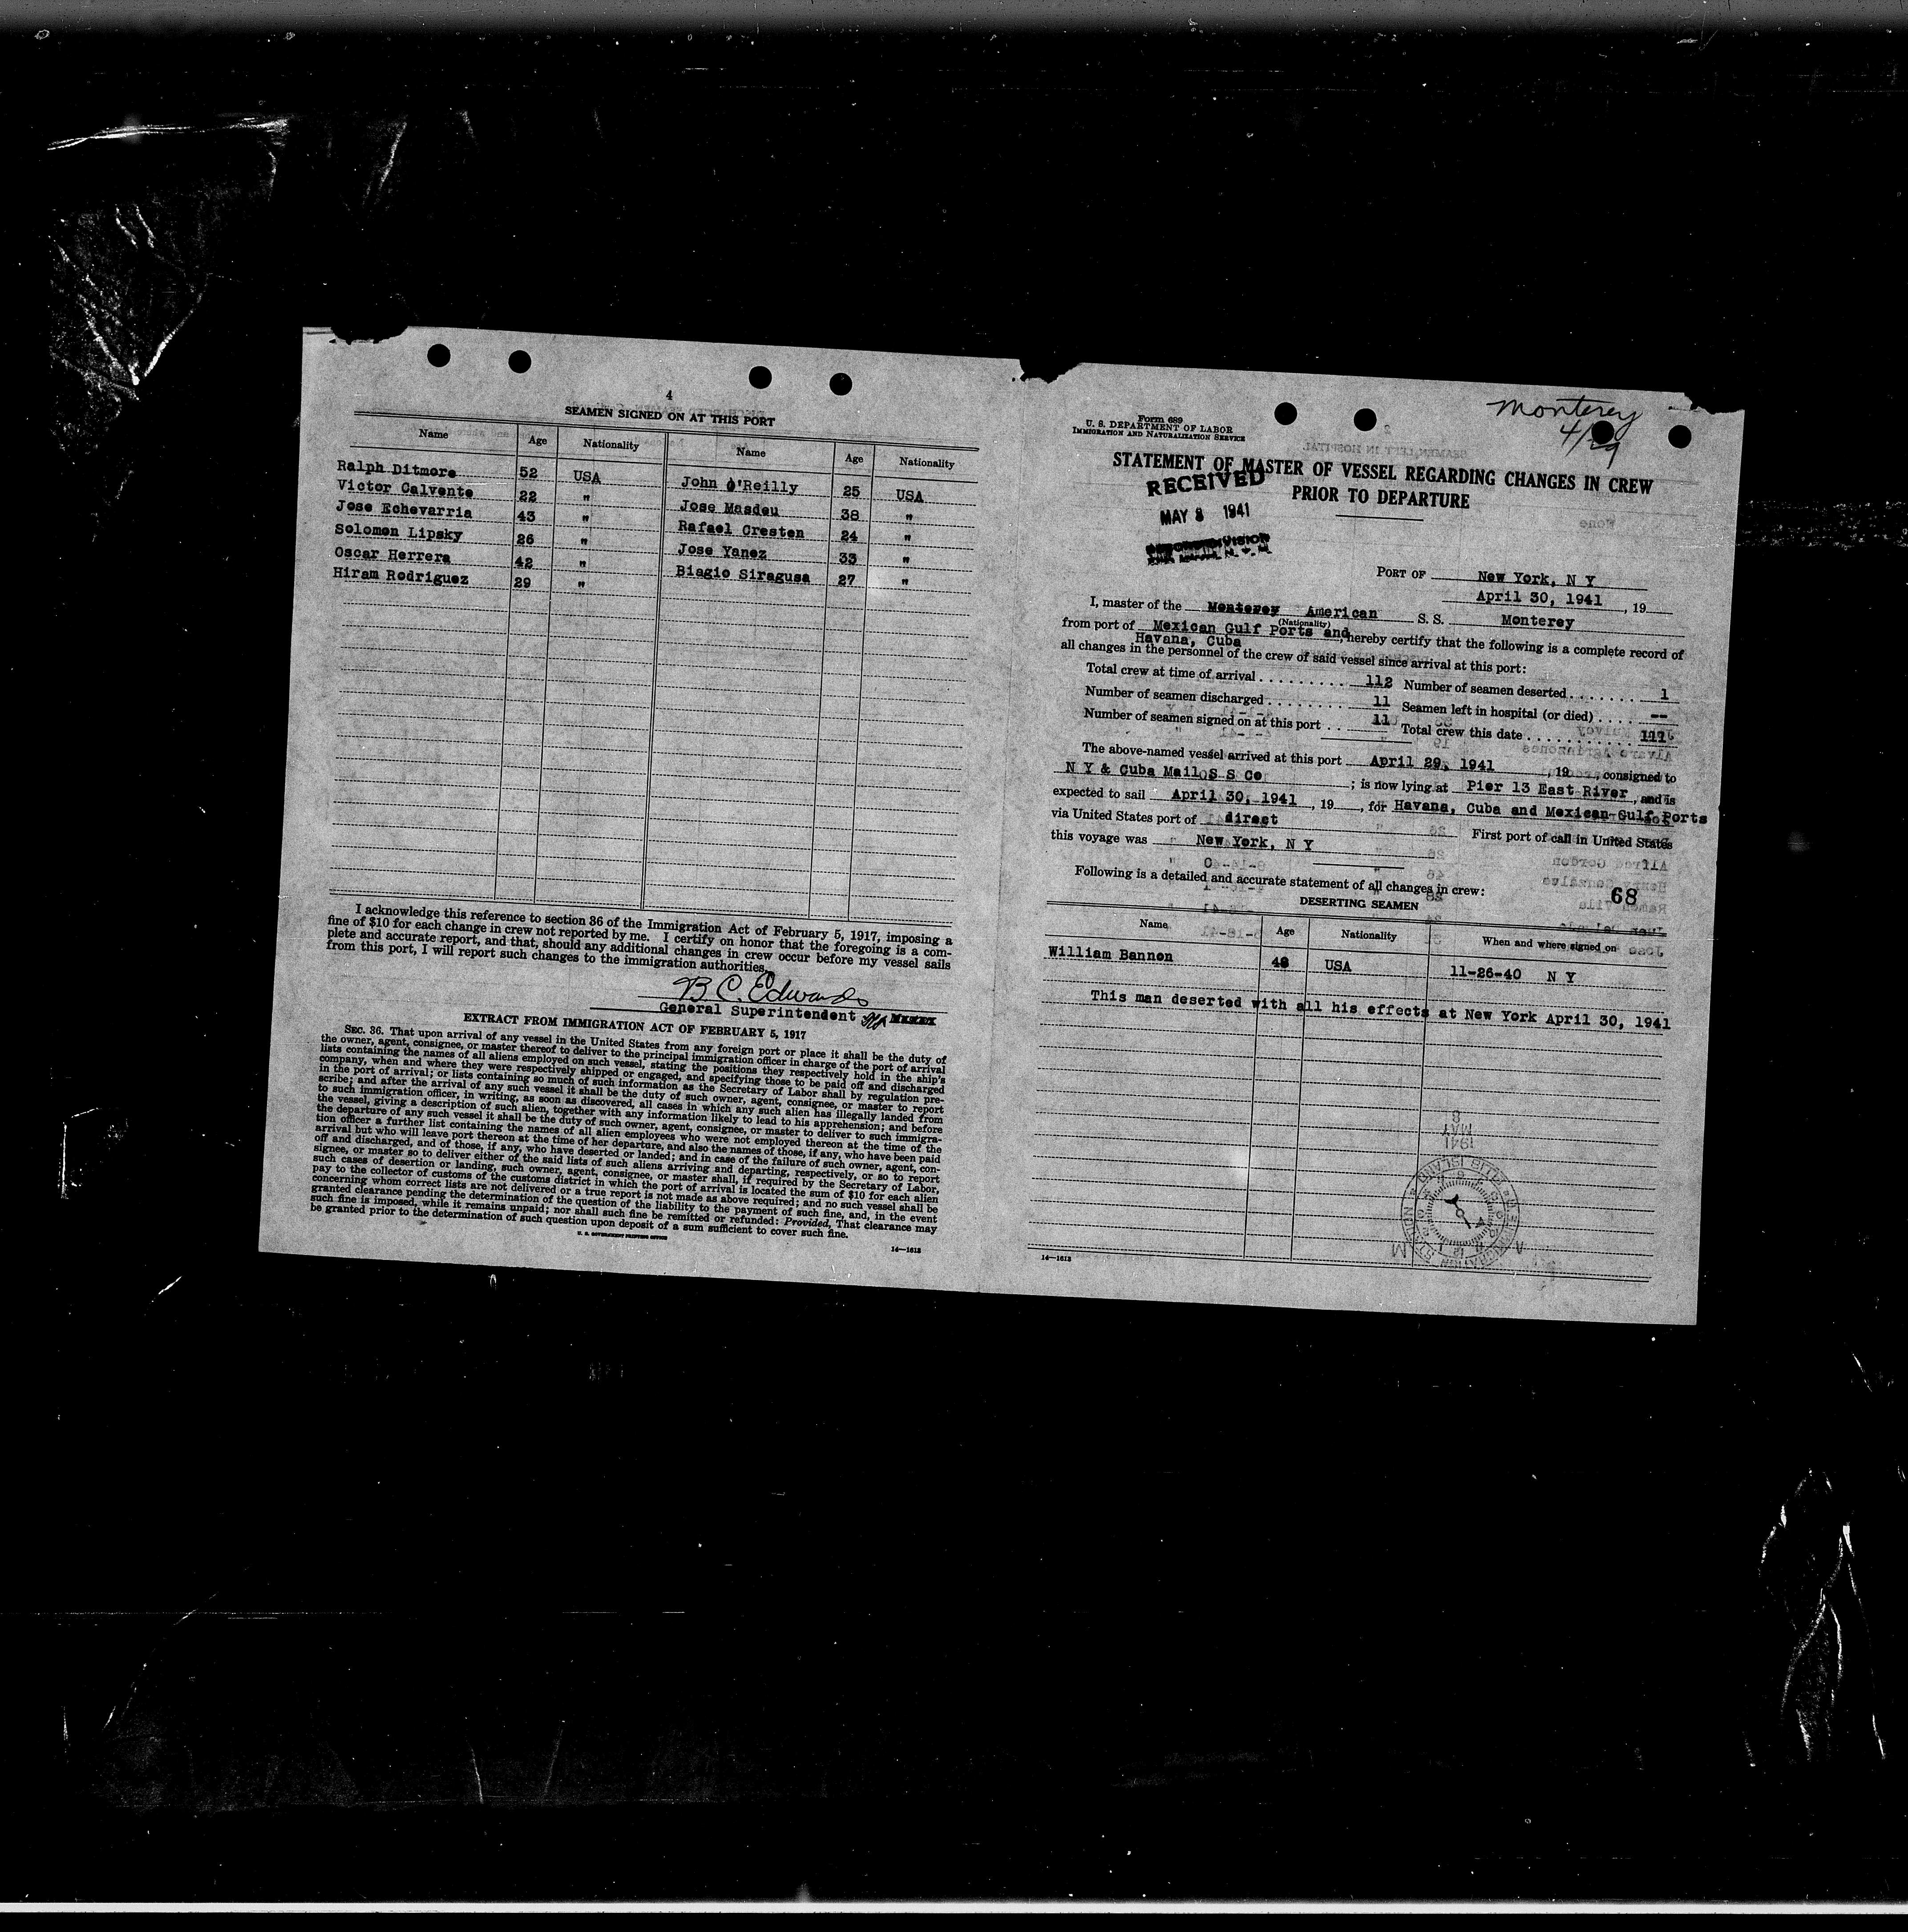 4
SEAMEN SIGNED ON AT THIS PORT
Name Age Nationality Name Age Nationality
Ralph Ditmore 52 USA John O'Reilly 25 USA
Victor Calvente 22 " Jose Masdeu 38 "
Jose Echevarria 43 " Rafael Cresten 24 "
Solomon Lipsky 26 " Jose Yanez 33 "
Oscar Herrera 42 " Biagio Siragusa 27 "
Hiram Rodriguez 29 "
I acknowledge this reference to section 36 of the Immigration Act of February 5, 1917, imposing a
fine of $10 for each change in crew not reported by me. I certify on honor that the foregoing is a com-
plete and accurate report, and that, should any additional changes in crew occur before my vessel sails
from this port, I will report such changes to the immigration authorities.
B. C. Edwards
General Superintendent
EXTRACT FROM IMMIGRATION ACT OF FEBRUARY 5, 1917
SEC. 36. That upon arrival of any vessel in the United States from any foreign port or place it shall be the duty of
the owner, agent, consignee, or master thereof to deliver to the principal immigration officer in charge of the port of arrival
lists containing the names of all aliens employed on such vessel, stating the positions they respectively hold in the ship's
company, when and where they were respectively shipped or engaged, and specifying those to be paid off and discharged
in the port of arrival; or lists containing so much of such information as the Secretary of Labor shall by regulation pre-
scribe; and after the arrival of any such vessel it shall be the duty of such owner, agent, consignee, or master to report
to such immigration officer, in writing, as soon as discovered, all cases in which any such alien has illegally landed from
the vessel, giving a description of such alien, together with any information likely to lead to his apprehension; and before
the departure of any such vessel it shall be the duty of such owner, agent, consignee, or master to deliver to such immigra-
tion officer a further list containing the names of all alien employees who were not employed thereon at the time of the
arrival but who will leave port thereon at the time of her departure, and also the names of those, if any, who have been paid
off and discharged, and of those, if any, who have deserted or landed; and in case of the failure of such owner, agent, con-
signee, or master so to deliver either of the said lists of such aliens arriving and departing, respectively, or so to report
such cases of desertion or landing, such owner, agent, consignee, or master shall, if required by the Secretary of Labor,
pay to the collector of customs of the customs district in which the port of arrival is located the sum of $10 for each alien
concerning whom correct lists are not delivered or a true report is not made as above required; and no such vessel shall be
granted clearance pending the determination of the question of the liability to the payment of such fine, and, in the event
such fine is imposed, while it remains unpaid; nor shall such fine be remitted or refunded: Provided, That clearance may
be granted prior to the determination of such question upon deposit of a sum sufficient to cover such fine.
U. S. GOVERNMENT PRINTING OFFICE
14—1613
Monterey
4/29
Form 689
U. S. DEPARTMENT OF LABOR
IMMIGRATION AND NATURALIZATION SERVICE
STATEMENT OF MASTER OF VESSEL REGARDING CHANGES IN CREW
PRIOR TO DEPARTURE
RECEIVED
MAY 8 1941
PORT OF New York, N Y
April 30, 1941, 19
I, master of the Monterey American S. S. Monterey
(Nationality)
from port of Mexican Gulf Ports and
Havana, Cuba, hereby certify that the following is a complete record of
all changes in the personnel of the crew of said vessel since arrival at this port:
Total crew at time of arrival . . . . . . . . . 112 Number of seamen deserted . . . . . . . 1
Number of seamen discharged . . . . . . . . 11 Seamen left in hospital (or died) . . . . --
Number of seamen signed on at this port . . 11 Total crew this date . . . . . . . . . . . . 111
The above-named vessel arrived at this port April 29, 1941, 19, consigned to
N Y & Cuba Mail S S Co ; is now lying at Pier 13 East River, and is
expected to sail April 30, 1941, 19, for Havana, Cuba and Mexican Gulf Ports
via United States port of direct First port of call in United States
this voyage was New York, N Y
Following is a detailed and accurate statement of all changes in crew:
68
DESERTING SEAMEN
Name Age Nationality When and where signed on
William Bannon 48 USA 11-26-40 N Y
This man deserted with all his effects at New York April 30, 1941
14—1613